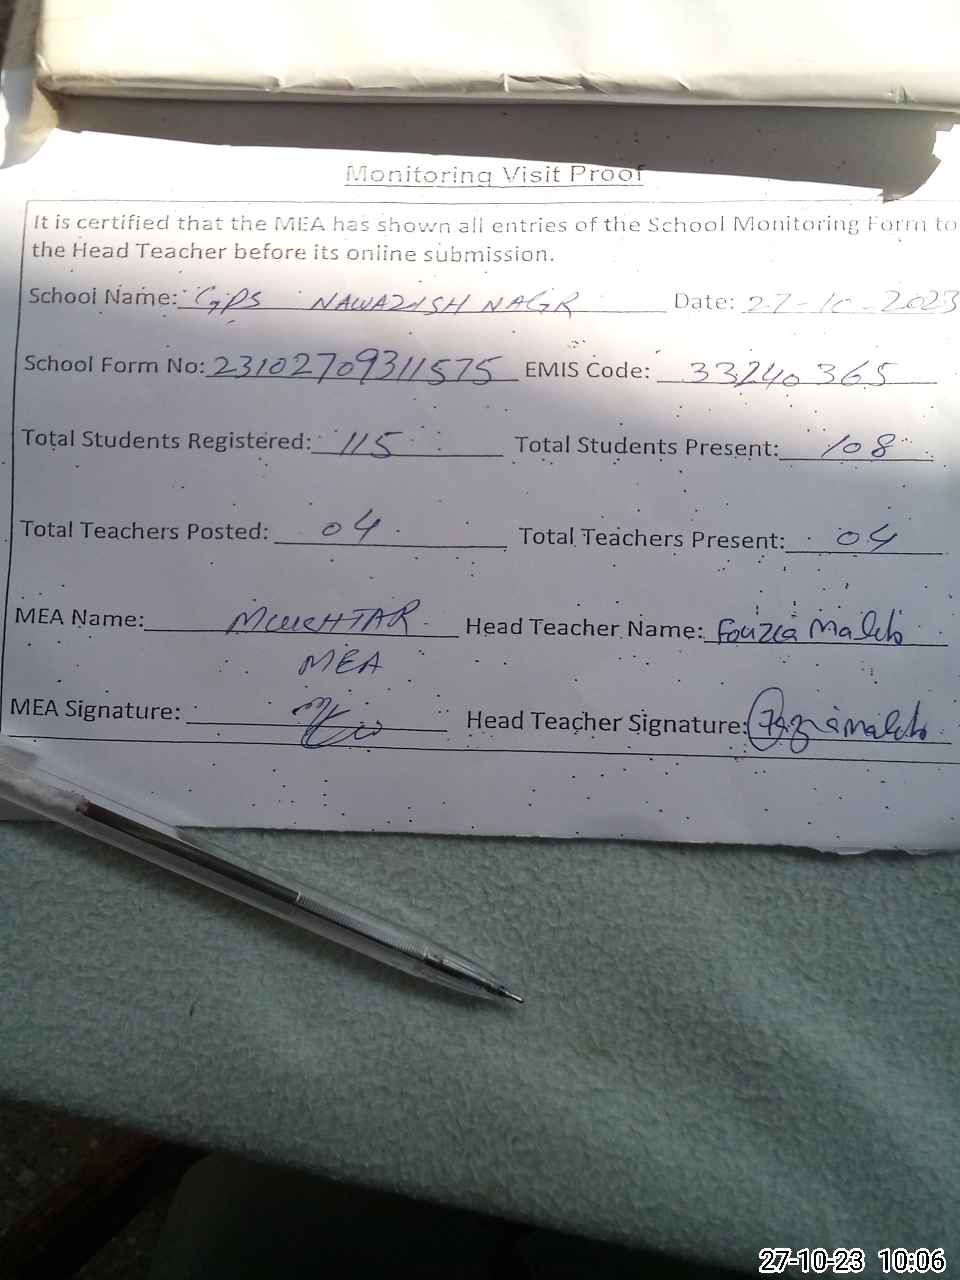 Monitoring Visit Proof
It is certified that the MEA has shown all entries of the School Monitoring Form to
the Head Teacher before its online submission.
School Name: GPS NAWAZISH NAGR Date: 27-10-2023
School Form No: 23102709311575 EMIS Code: 33240365
Total Students Registered: 115 Total Students Present: 108
Total Teachers Posted: 04 Total Teachers Present: 04
MEA Name: MUKHTAR Head Teacher Name: Fouzia
MEA
MEA Signature: Head Teacher Signature:
27-10-23 10:06